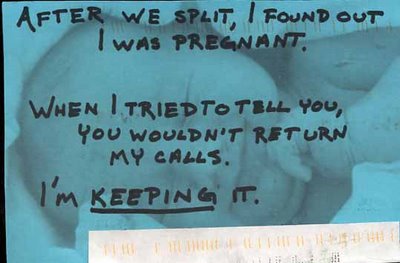 AFTER WE SPLIT, I FOUND OUT
I WAS PREGNANT.
WHEN I TRIED TO TELL YOU,
YOU WOULDN'T RETURN
MY CALLS.
I'M KEEPING IT.